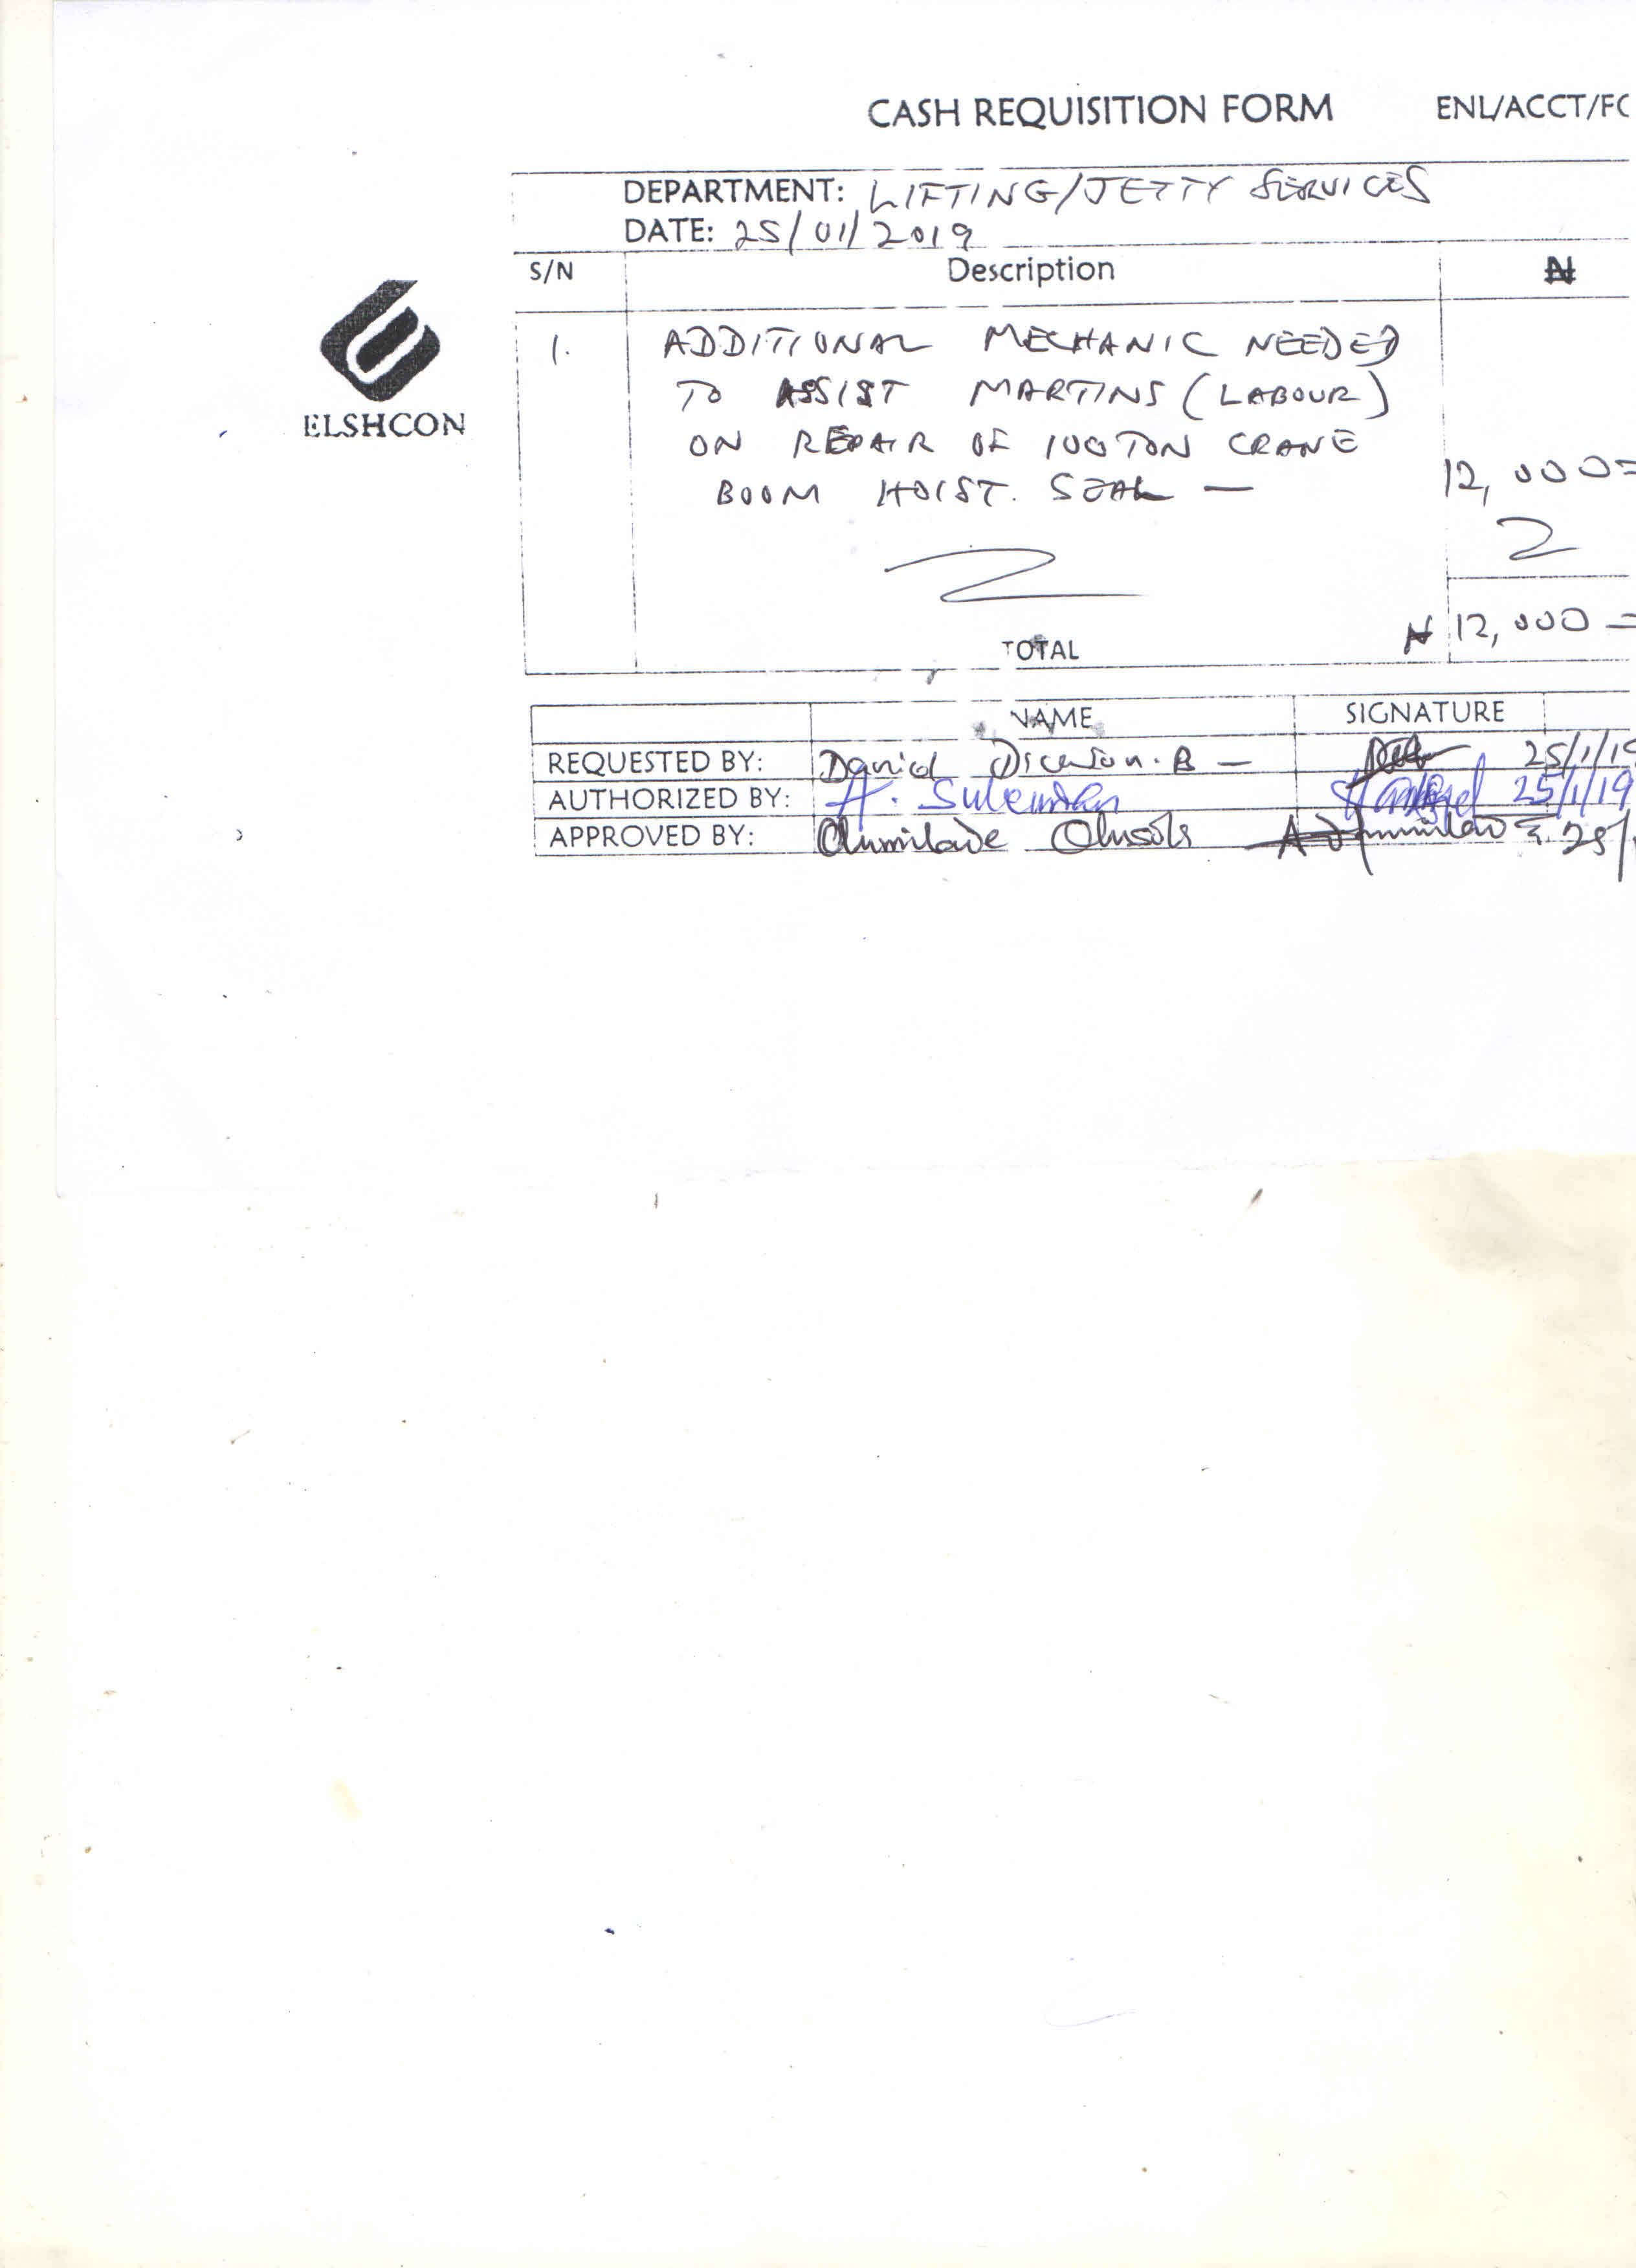 CASH REQUISITION FORM ENL/ACCT/FC
DEPARTMENT: LIFTING/JETTY SERVICES
DATE: 25/01/2019
S/N Description ₦
1. ADDITIONAL MECHANIC NEEDED
TO ASSIST MARTINS (LABOUR)
ON REPAIR OF 100TON CRANE
BOOM HOIST. SEAL — 12,000=
TOTAL ₦ 12,000 =
ELSHCON
NAME SIGNATURE
REQUESTED BY: Daniel Dickson. B — 25/1/19
AUTHORIZED BY: A. Suleiman 25/1/19
APPROVED BY: Olumilade Olusola 25/